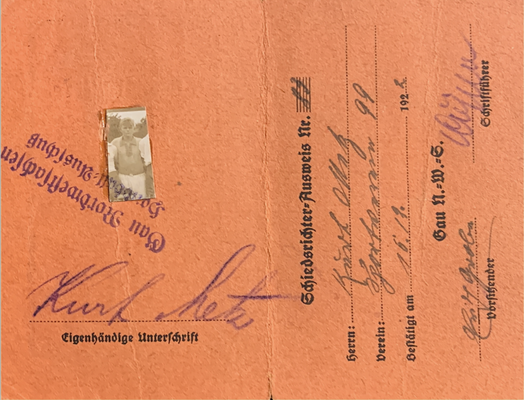 Gau Nordwestsachsen
Ausschuß
Kurt Metz
Eigenhändige Unterschrift
Schiedsrichter-Ausweis Nr. 11
Herrn: Kurt Metz
Verein: Sportverein 99
Bestätigt am 16./2. 192
Gau N.-W.-S.
Vorsitzender
Schriftführer